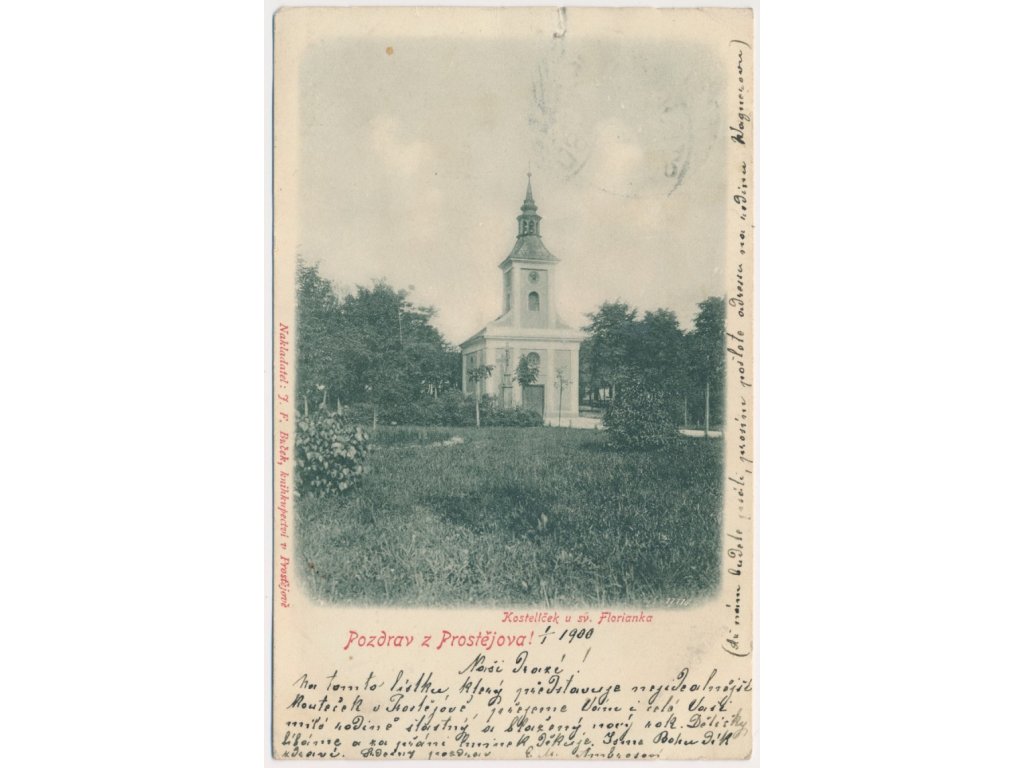 Nakladatel: J. F. Buček, knihkupectví v Prostějově
Kostelíček u sv. Florianka
Pozdrav z Prostějova! 1/1 1900
Naši Drazí!
Na tomto lístku, který představuje nejidealnější
kouteček v Prostějově přejeme Vám i celé Vaší
milé rodině šťastný a blažený nový rok. Dětičky
líbáme a za přání Aninek děkuje. Jsme Bohu dík
zdrávi. Srdečný pozdrav E. M. Ambrosovi
(Až nám budete psáti, prosím pošlete adressu na rodinu Wagnerovu)